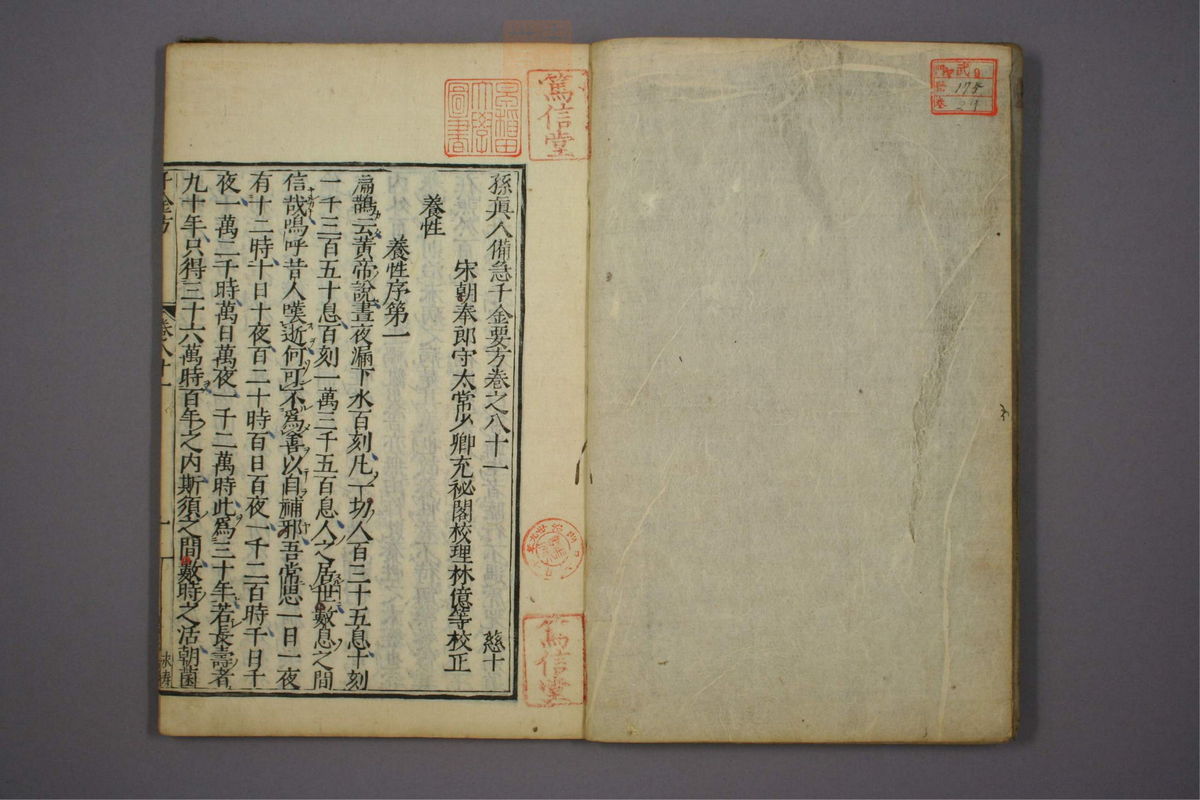 武
175
29
篤信堂
早稲田大學圖書
篤信堂
孫眞人備急千金要方卷之八十一 慈十
宋朝奉郎守太常少卿充祕閣校理林億等校正
養性
養性序第一
扁鵲云黃帝說晝夜漏下水百刻凡一刻人百三十五息十刻
一千三百五十息百刻一萬三千五百息人之居世數息之間
信哉嗚呼昔人嘆逝何可不爲善以自補邪吾常思一日一夜
有十二時十日十夜百二十時百日百夜一千二百時千日千
夜一萬二千時萬日萬夜一十二萬時此爲三十年若長壽者
九十年只得三十六萬時百年之内斯須之間數時之活朝菌
千金方
卷八十一
一